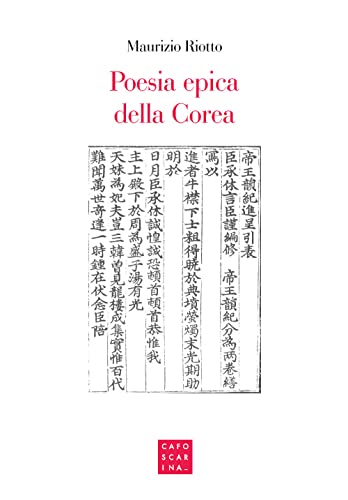 Maurizio Riotto
Poesia epica
della Corea
帝王韻紀進呈引表
臣承休言臣謹編修 帝王韻紀分為两卷繕
寫以
進者牛襟下士粗得曉於典墳螢燭末光期助
明於
日月臣承休誠惶誠恐頓首頓首恭惟我
主上殿下於周為盛于湯有光
天妹為妃夫豈三韓曾見龍樓成集實惟百代
難聞萬世奇逢一時鍾在伏念臣陪
CAFO
SCAR
INA_